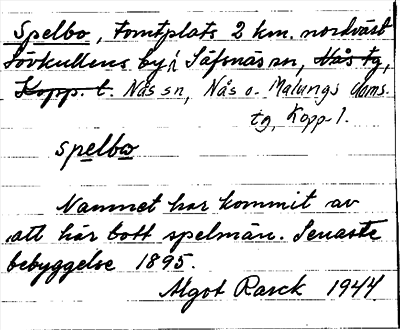 Spelbo, tomtplats 2 km. nordväst
Lövkullens by i Säfsnäs sn, Nås tg,
Kopp. l. Nås sn, Nås o. Malungs doms.
tg, Kopp l.
spelbo
Namnet har kommit av
att här bott spelmän. Senaste
bebyggelse 1895.
Algot Rasck 1944